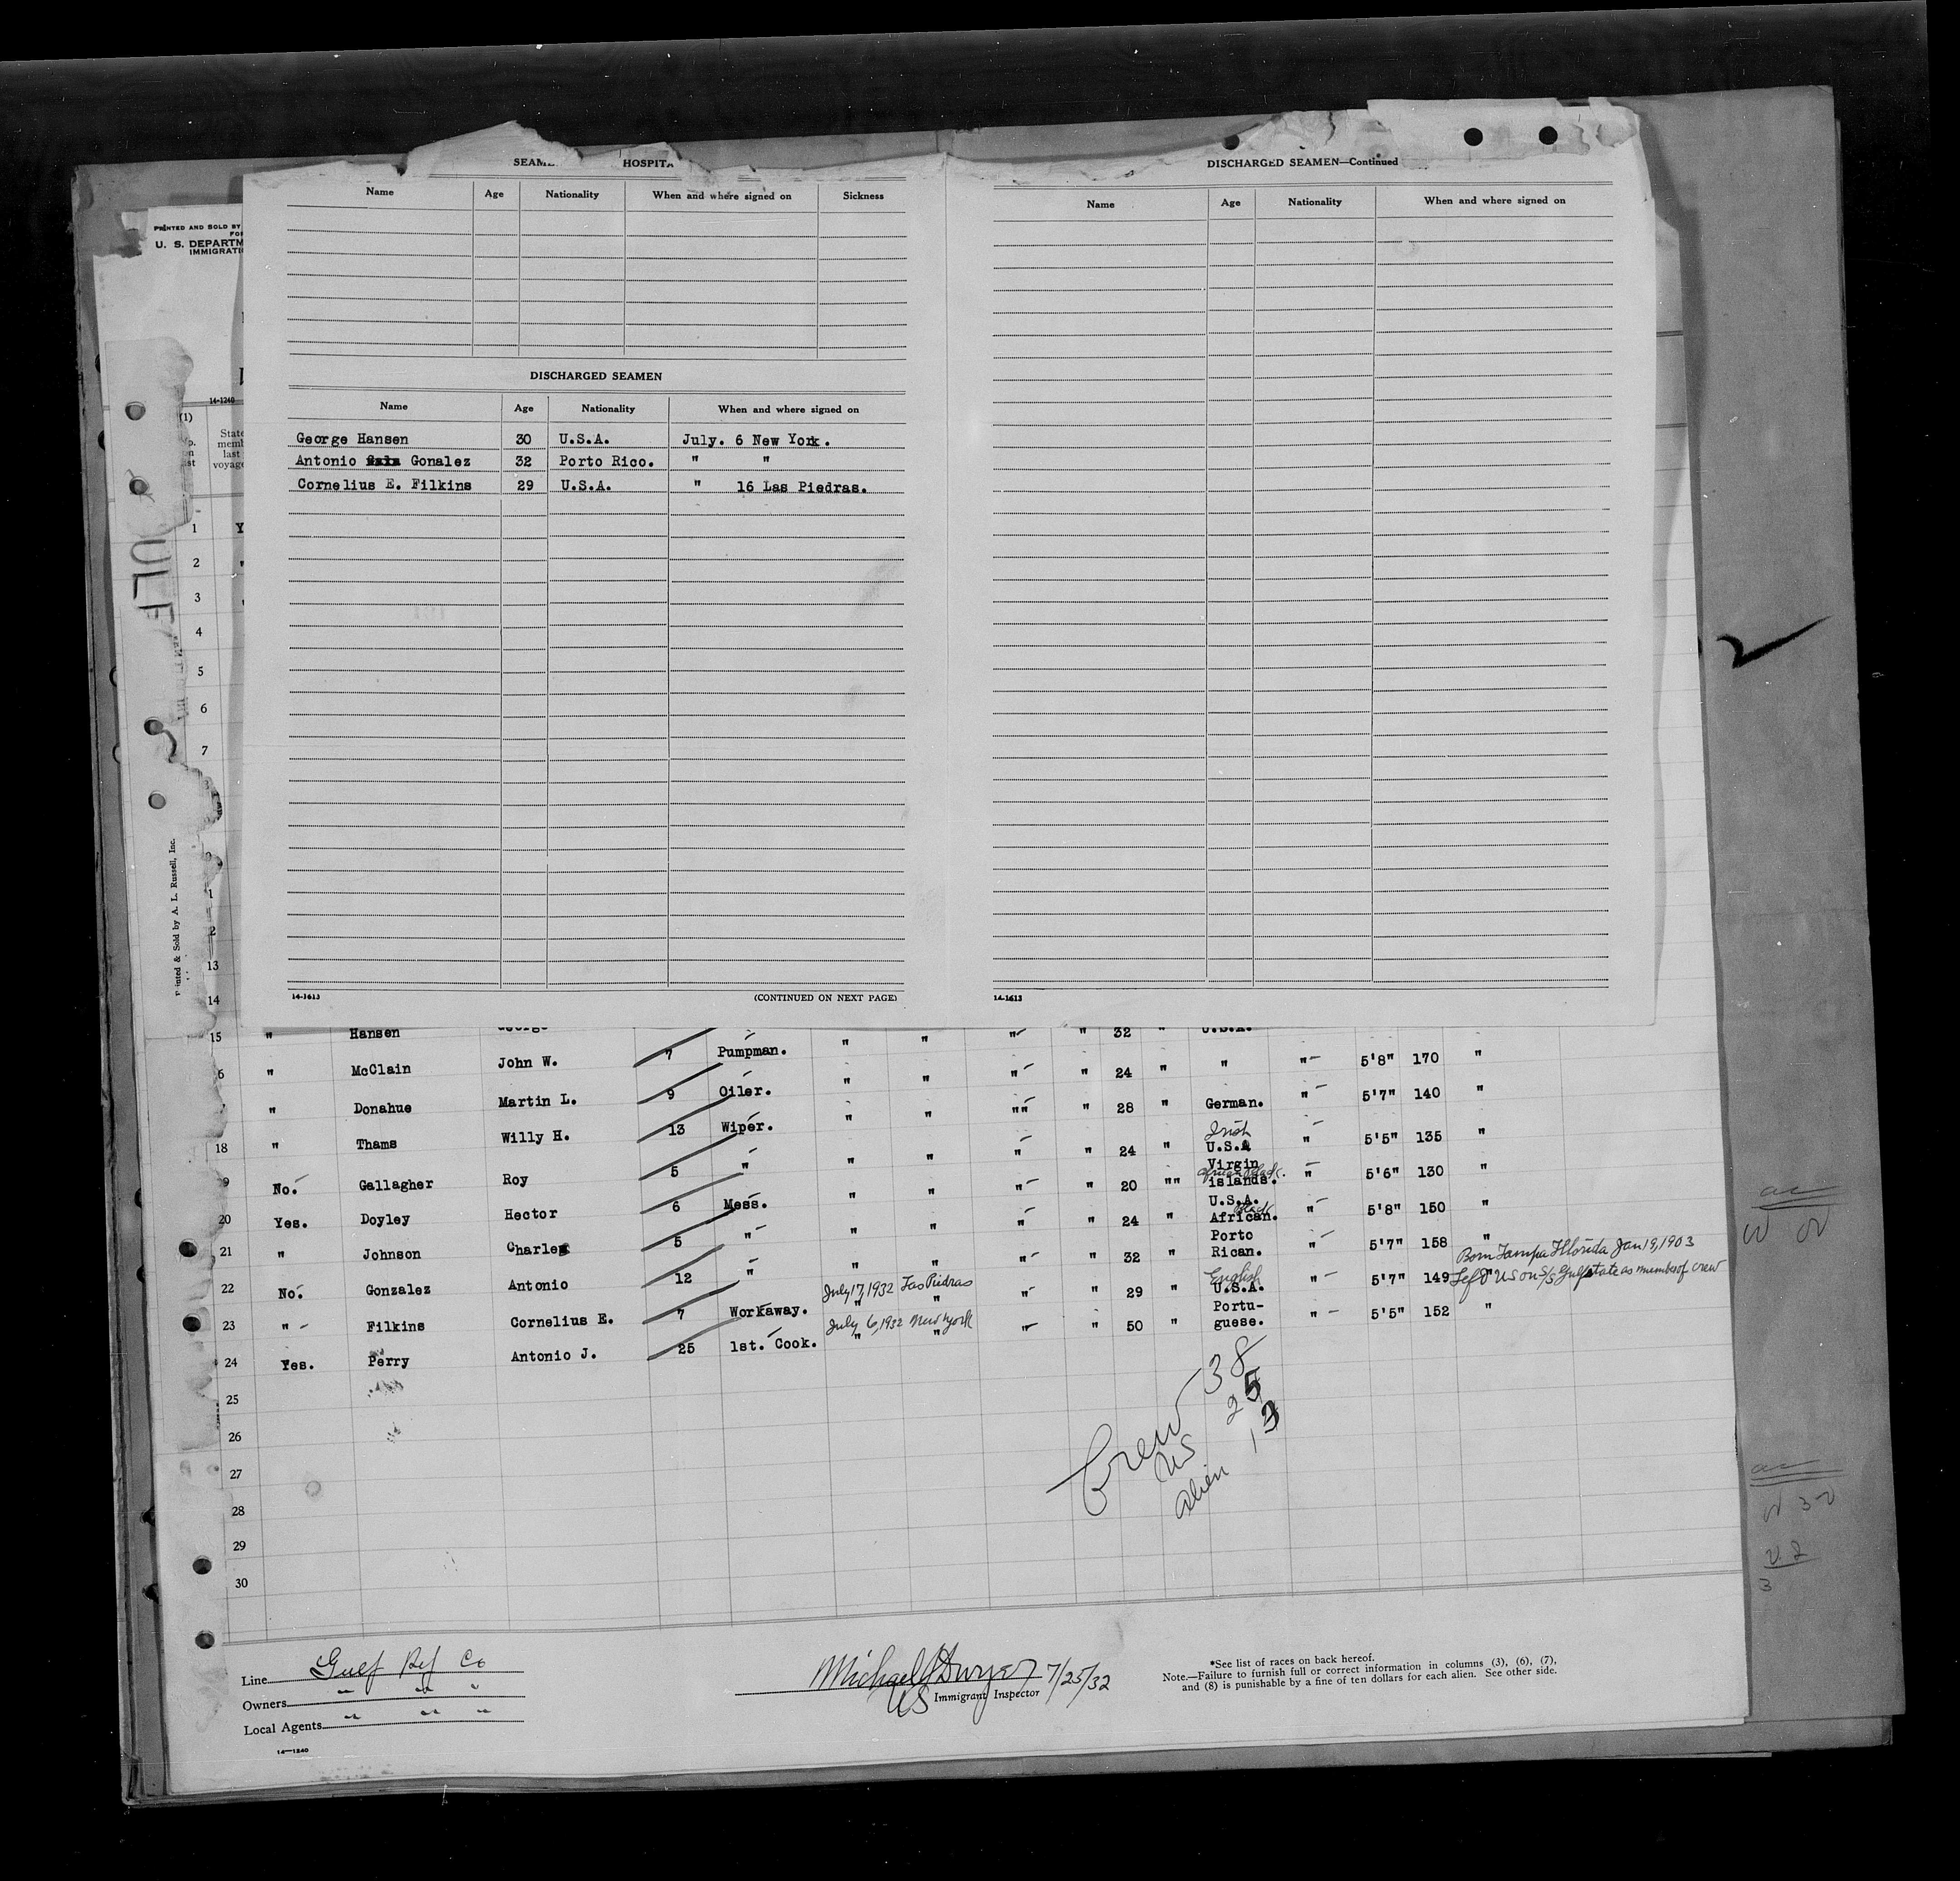 DISCHARGED SEAMEN—Continued
Name Age Nationality When and where signed on Sickness
Name Age Nationality When and where signed on
PRINTED AND SOLD BY
U. S. DEPARTM
IMMIGRATI
14-1240
(1)
DISCHARGED SEAMEN
Name Age Nationality When and where signed on
George Hansen 30 U.S.A. July. 6 New York.
Antonio Gonalez 32 Porto Rico. " "
Cornelius E. Filkins 29 U.S.A. " 16 Las Piedras.
ULF
1 Y
2 "
3
4
5
6
7
1
2
13
14
Printed & Sold by A. L. Russell, Inc.
14-1613 (CONTINUED ON NEXT PAGE) 14-1613
15 " Hansen George 7 Pumpman. " " " " 32 " U.S.A.
6 " McClain John W. 9 Oiler. " " " " 24 " " " 5'8" 170 "
" Donahue Martin L. 13 Wiper. " " "" " 28 " German. " 5'7" 140 "
18 " Thams Willy H. 5 " " " " " 24 " Irish U.S.A " 5'5" 135 "
9 No. Gallagher Roy 6 Mess. " " " " 20 "" Virgin islands. " 5'6" 130 "
20 Yes. Doyley Hector 5 " " " " " 24 " U.S.A. Black African. " 5'8" 150 "
21 " Johnson Charles 12 " " " " " 32 " Porto Rican. " 5'7" 158 "
22 No. Gonzalez Antonio 7 Workaway. July 17, 1932 Las Piedras " " " " 29 " English U.S.A. " 5'7" 149 Born Tampa Florida Jan 19, 1903
Left US on S/S Gulfstate as member of crew
23 " Filkins Cornelius E. 25 1st. Cook. July 6, 1932 New York " " " " 50 " Portu-guese. " 5'5" 152 "
24 Yes. Perry Antonio J.
25
26
27
28
29
30
Crew 38
US 25
Alien 13
Line Gulf Ref Co
Owners " " "
Local Agents " " "
14—1240
Michael J Dwyer 7/25/32
US Immigrant Inspector
*See list of races on back hereof.
Note.—Failure to furnish full or correct information in columns (3), (6), (7),
and (8) is punishable by a fine of ten dollars for each alien. See other side.